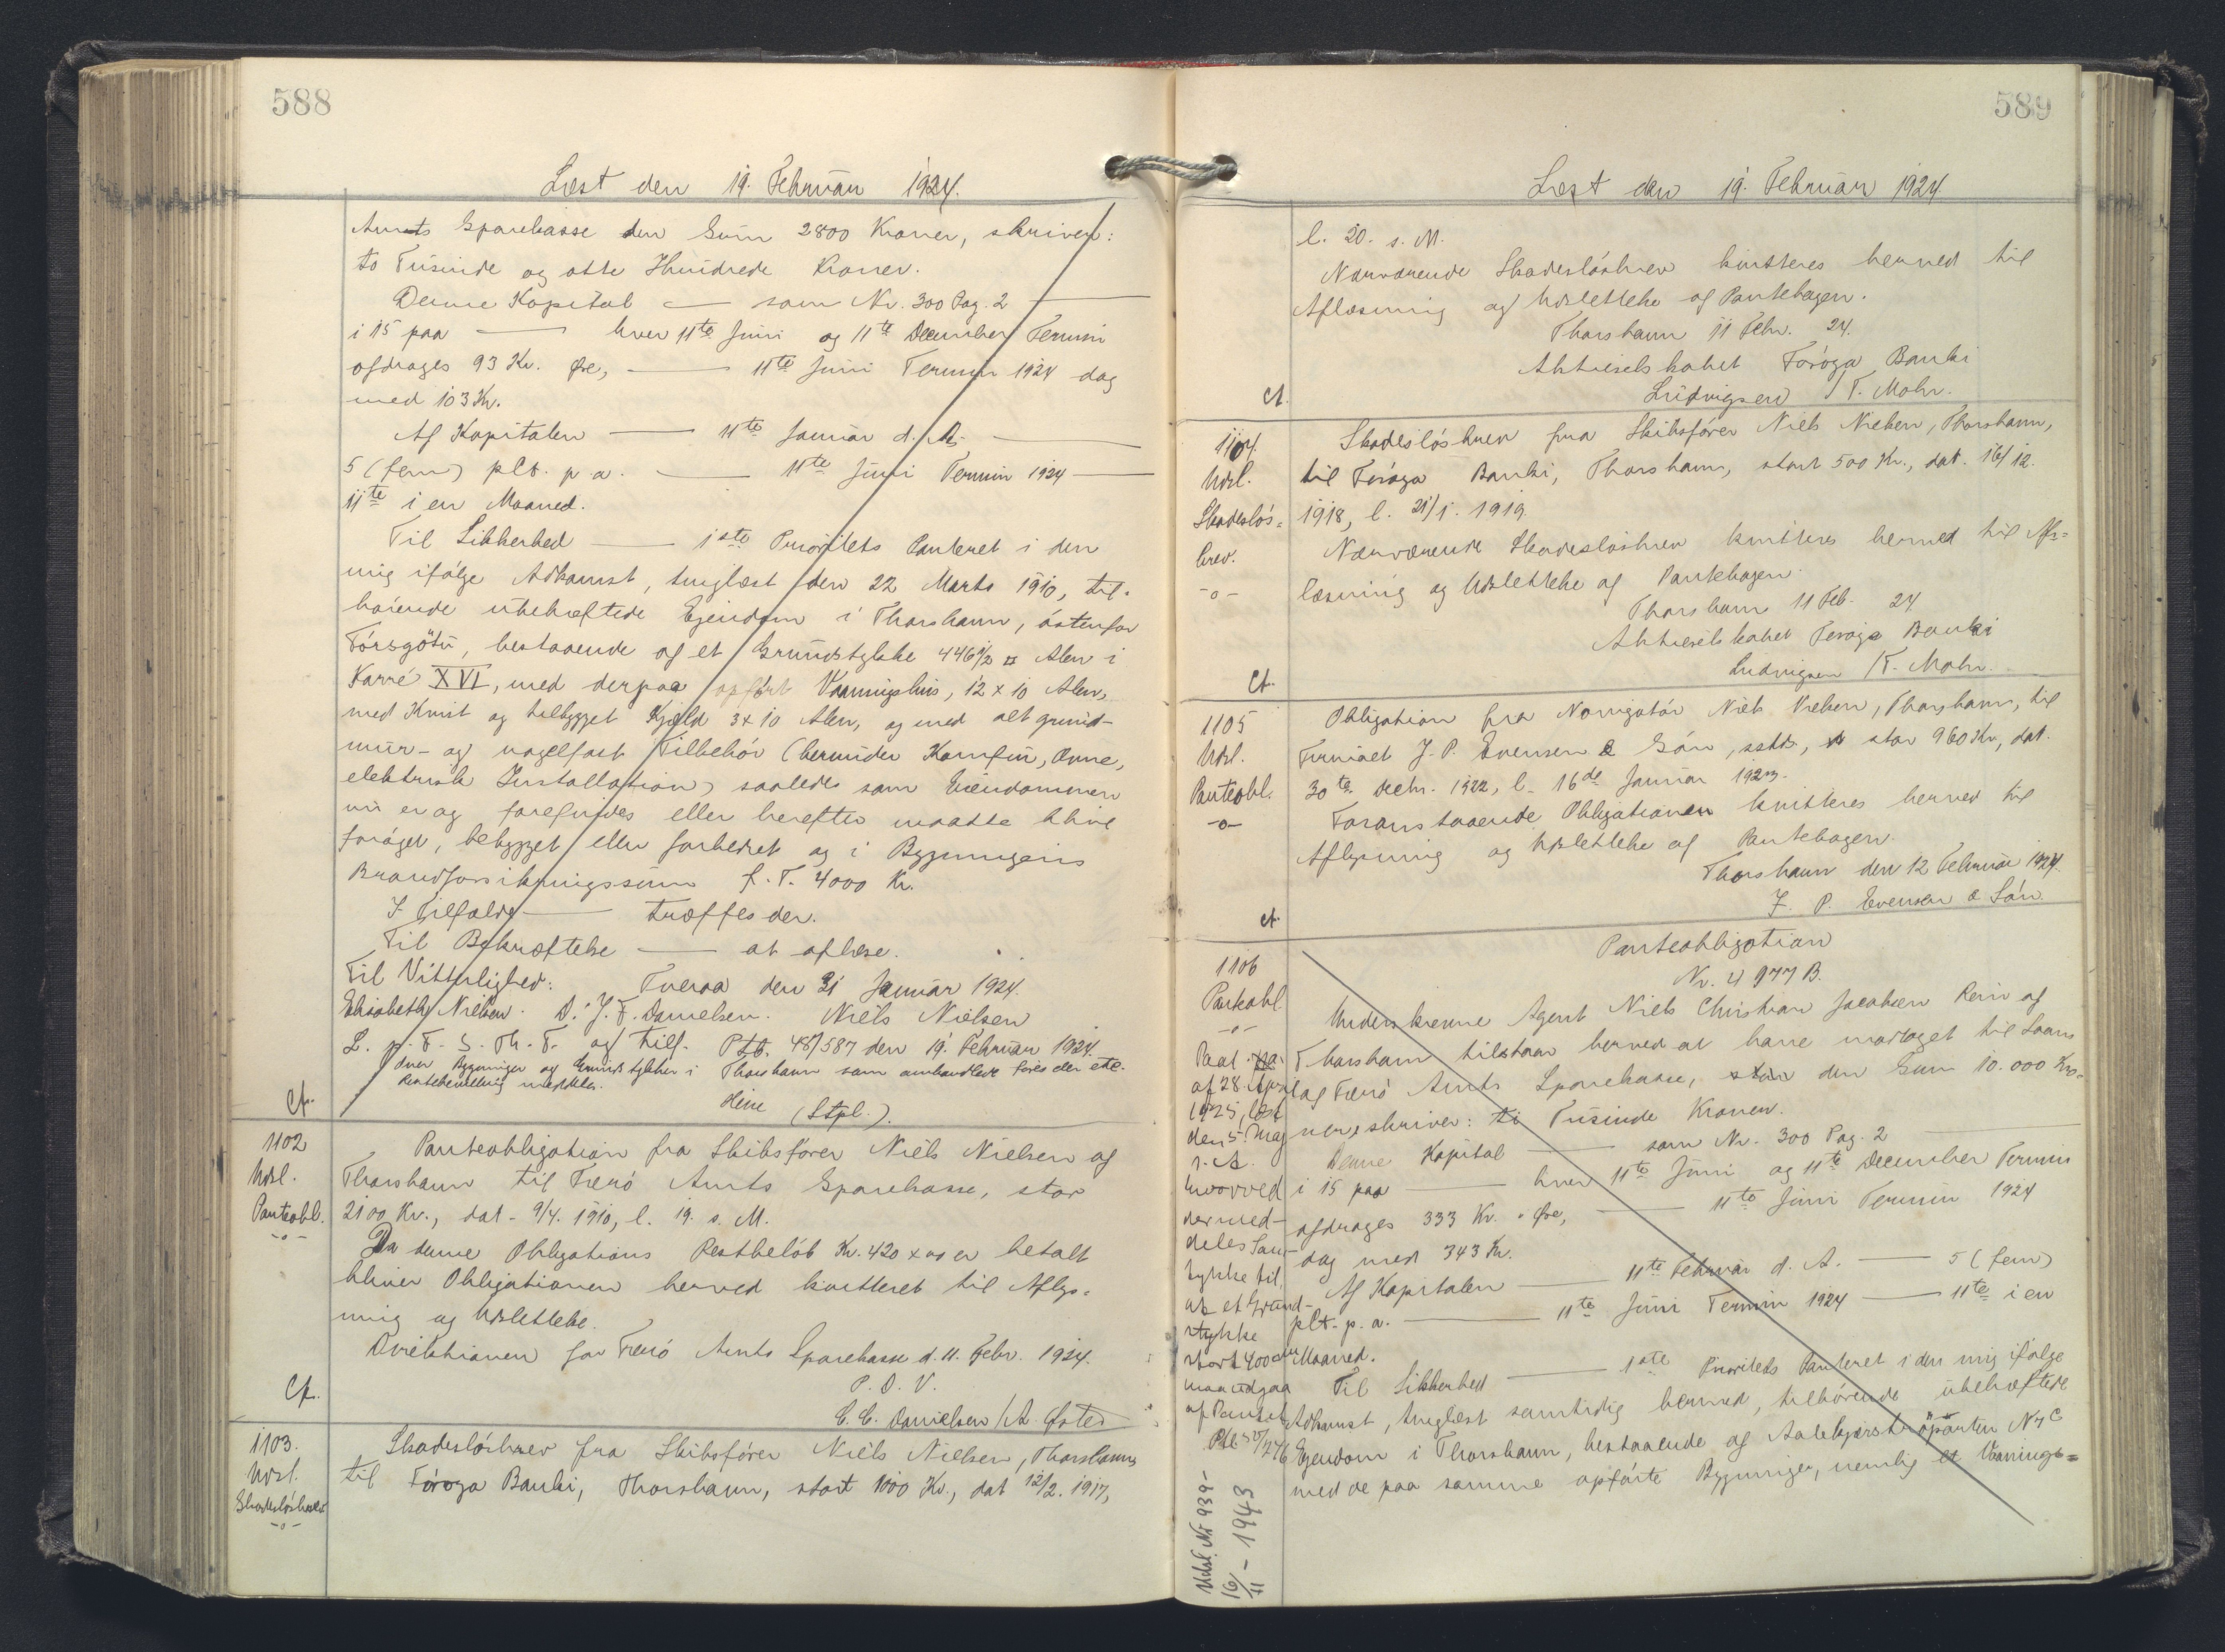 588
Læst den 19. Februar 1924.
Amts Sparekasse den Sum 2800 Kroner, skriver:
to Tusinde og otte Hundrede Kroner.
Denne Kapital — som Nr. 300 Pag. 2 —
i 15 paa — hver 11te Juni og 11te December Termin
afdrages 93 Kr. Øre, — 11te Juni Termin 1924 dog
med 103 Kr.
Af Kapitalen — 11te Januar d. A. —
5 (fem) pCt. p. a. — 11te Juni Termin 1924 —
11te i en Maaned.
Til Sikkerhed — 1ste Prioritets Panteret i den
mig ifølge Adkomst, tinglæst den 22 Marts 1910, til-
hørende ubehæftede Ejendom i Thorshavn, østenfor
Tórsgötu, bestaaende af et Grundstykke 446 1/2 □ Alen i
Karré XVI, med derpaa opført Vaaningshus, 12 x 10 Alen,
med Kvist og tilbygget Kjæld 3 x 10 Alen, og med alt grund-
mur- og nagelfast Tilbehør (herunder Komfur, Ovne,
elektrisk Installation) saaledes som Eiendommen
nu er og forefindes eller herefter maatte blive
forøget, bebygget eller forbedret og i Bygningens
Brandforsikringssum f. T. 4000 Kr.
I Tilfælde — træffes der.
Til Bekræftelse — at aflæse.
Til Vitterlighed: Tveraa den 31 Januar 1924.
Elisabeth Nielsen. D. J. F. Danielsen. Niels Nielsen
L. p. F. S. Th. F. og tilf. Ptb. 48/587 den 19. Februar 1924.
Over Bygninger og Grundstykker i Thorshavn som omhandlede føres der etc.
Hine (Stpl.).
Ct.
1102
Udsl.
Panteobl.
-o-
Panteobligation fra Skibsfører Niels Nielsen af
Thorshavn til Færø Amts Sparekasse, stor
2100 Kr., dat. 9/4. 1910, l. 19. s. M.
Da denne Obligations Restbeløb Kr. 420 x 00 er betalt
bliver Obligationen herved kvitteret til Aflys-
ning og Udslettelse.
Direktionen for Færø Amts Sparekasse d. 11. Febr. 1924.
P. D. V.
C. C. Danielsen / A. Østed
Ct.
1103.
Udsl.
Skadesløsbrev
-o-
Skadesløsbrev fra Skibsfører Niels Nielsen, Thorshavn,
til Føroya Banki, Thorshavn, stort 1000 Kr., dat 12/2. 1917,
589
Læst den 19. Februar 1924
l. 20. s. M.
Nærværende Skadesløsbrev kvitteres herved til
Aflæsning og Udslettelse af Pantebogen.
Thorshavn 11 Febr. 24.
Aktieselskabet Føroya Banki
Ludvigsen / T. Mohr.
Ct.
1104.
Udsl.
Skadesløs-
brev.
-o-
Skadesløsbrev fra Skibsfører Niels Nielsen, Thorshavn,
til Føroya Banki, Thorshavn, stort 500 Kr., dat. 16/12.
1918, l. 21/1. 1919.
Nærværende Skadesløsbrev kvitteres herved til Af-
læsning og Udslettelse af Pantebogen.
Thorshavn 11 Feb. 24
Aktieselskabet Føroya Banki
Ludvigsen / T. Mohr.
Ct.
1105
Udsl.
Panteobl.
-o-
Obligation fra Navigatør Niels Nielsen, Thorshavn, til
Firmaet J. P. Evensen & Søn, sstds., stor 960 Kr, dat.
30te Decbr. 1922, l. 16de Januar 1923.
Foranstaaende Obligationen kvitteres herved til
Aflysning og Udslettelse af Pantebogen.
Thorshavn den 12 Februar 1924.
J. P. Evensen & Søn.
Ct.
1106
Panteobl
-o-
Paat.
af 28. Apr.
1925, læst
den 5. Maj
s. A.
hvorved
dermed-
deles Sam-
tykke til,
at et Grund-
stykke
stort 400
maa udgaa
af Pantet
Ptb 50/276
Udsl. Nr 939-
16/11 - 1943
Panteobligation
Nr. 4977 B.
Underskrevne Agent Niels Christian Jacobsen Rein af
Thorshavn tilstaar herved at have modtaget til Laans
af Færø Amts Sparekasse, den Sum 10.000 Kro-
ner, skriver: ti Tusinde Kroner.
Denne Kapital — som Nr. 300 Pag. 2 —
i 15 paa — hver 11te Juni og 11te December Termin
afdrages 333 Kr. " Øre, — 11te Juni Termin 1924
dog med 343 Kr.
Af Kapitalen — 11te Februar d. A. — 5 (fem)
pCt. p. a. — 11te Juni Termin 1924 — 11te i en
Maaned.
Til Sikkerhed — 1ste Prioritets Panteret i den mig ifølge
Adkomst, tinglæst samtidig hermed, tilhørende ubehæftede
Ejendom i Thorshavn, bestaaende af Aalekjærströparten N 7 c
med de paa samme opførte Bygninger, nemlig et Vaanings-